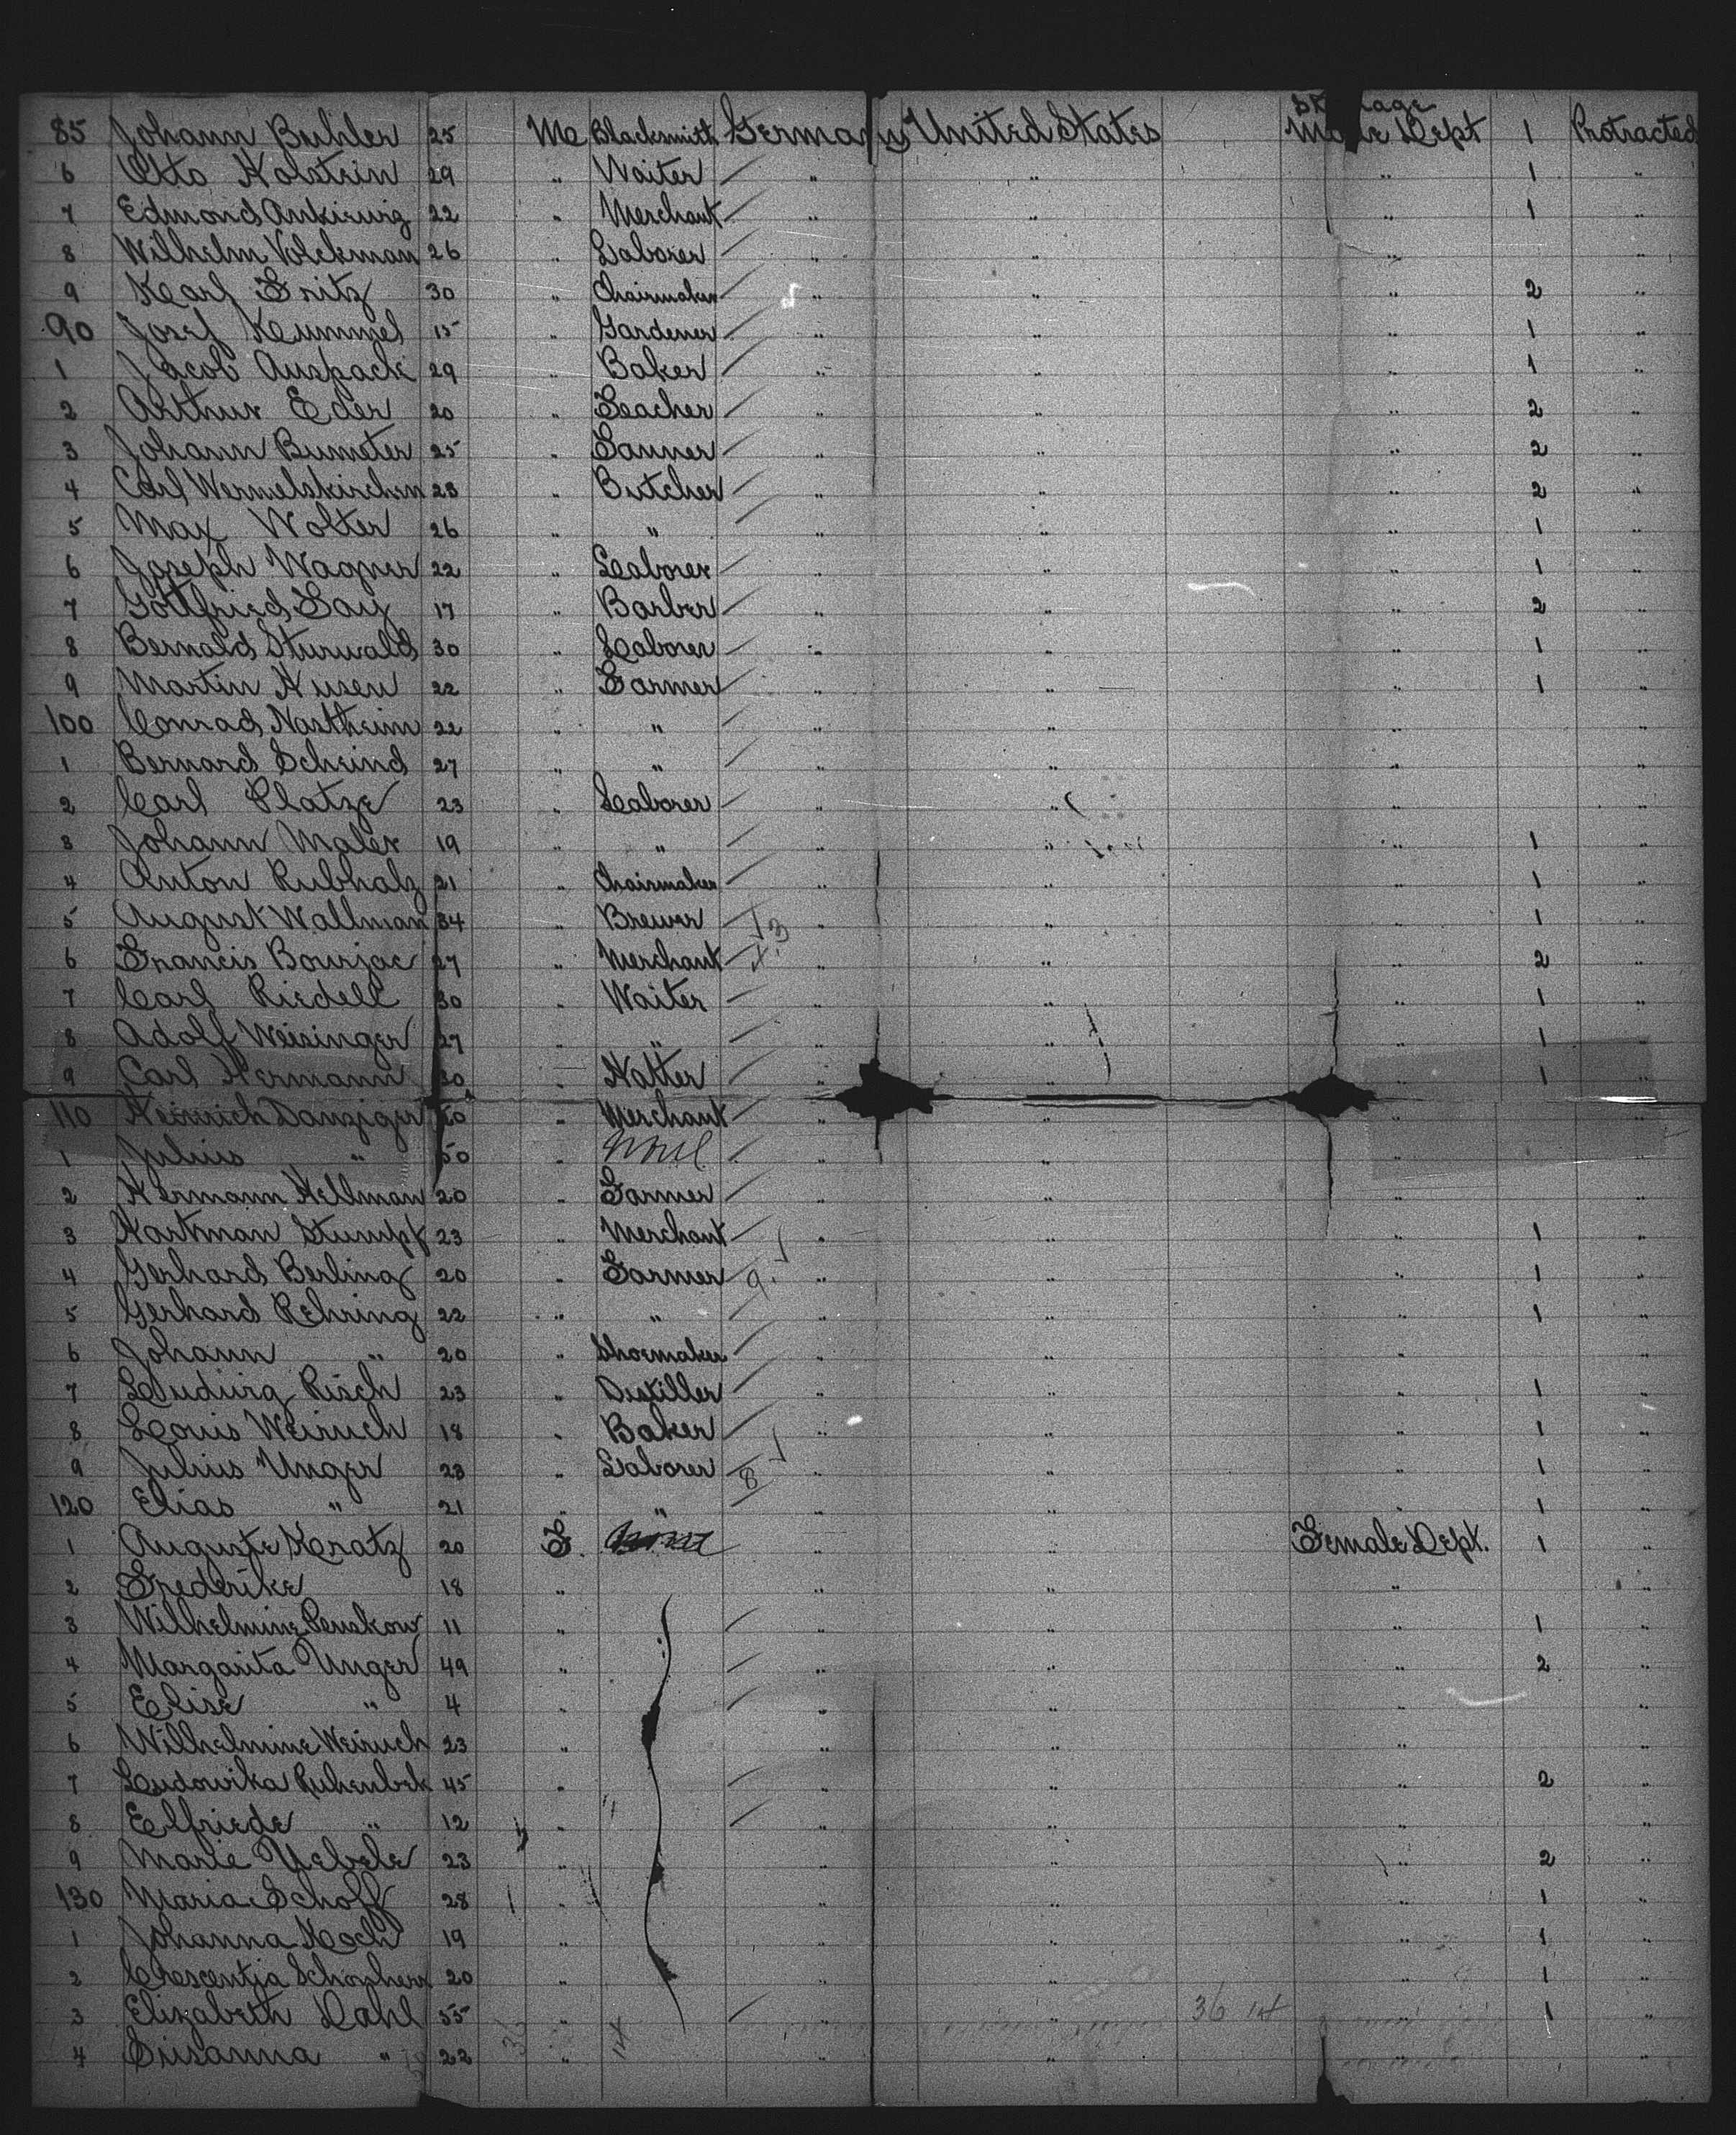 Steerage
85 Johann Buhler 25 M Blacksmith Germany United States Male Dept 1 Protracted
6 Otto Holstein 29 " Waiter " " " 1 "
7 Edmond Ankirwig 22 " Merchant " " " 1 "
8 Wilhelm Volckman 26 " Laborer " " " "
9 Karl Fritz 30 " Chairmaker " " " 2 "
90 Josef Kummel 15 " Gardener " " " 1 "
1 Jacob Auspack 29 " Baker " " " 1 "
2 Arthur Eder 20 " Teacher " " " 2 "
3 Johann Bumeter 25 " Tanner " " " 2 "
4 Carl Wermelskirchen 23 " Butcher " " " 2 "
5 Max Wolter 26 " " " " " 1 "
6 Joseph Wagner 22 " Laborer " " " 1 "
7 Gottfried Say 17 " Barber " " " 2 "
8 Bernald Sturwald 30 " Laborer " " " 1 "
9 Martin Husen 22 " Farmer " " " 1 "
100 Conrad Nastheim 22 " " " " " "
1 Bernard Scheind 27 " " " " " "
2 Carl Platze 23 " Laborer " " " "
3 Johann Maler 19 " " " " " 1 "
4 Anton Rubholz 21 " Chairmaker " " " 1 "
5 August Wallman 34 " Brewer " " " 1 "
6 Francis Bourjae 27 " Merchant " " " 2 "
7 Carl Riedell 30 " Waiter " " " 1 "
8 Adolf Weisinger 27 " " " " " 1 "
9 Carl Hermann 30 " Hatter " " " 1 "
110 Heinrich Danziger " Merchant " " " "
1 Julius " 50 " None " " " "
2 Hermann Hellman 20 " Farmer " " " "
3 Hartman Stumpf 23 " Merchant " " " 1 "
4 Gerhard Berling 20 " Farmer 9 " " " 1 "
5 Gerhard Rehring 22 " " " " " 1 "
6 Johann " 20 " Shoemaker " " " "
7 Ludwig Risch 23 " Distiller " " " 1 "
8 Louis Weiruch 18 " Baker " " " 1 "
9 Julius Unger 23 " Laborer 8 " " " 1 "
120 Elias " 21 " " " " " 1 "
1 Auguste Kratz 20 F. " " Female Dept. 1 "
2 Frederike 18 " " " " "
3 Wilhelmine Penskow 11 " " " " 1 "
4 Margarita Unger 49 " " " " 2 "
5 Elise " 4 " " " " "
6 Wilhelmine Weiruch 23 " " " " "
7 Ludowika Ruhenbek 45 " " " " 2 "
8 Elfriede " 12 " " " " "
9 Marie Uebele 23 " " " " 2 "
130 Maria Schoff 28 " " " " 1 "
1 Johanna Koch 19 " " " " 1 "
2 Crescentia Schonherr 20 " " " " 1 "
3 Elizabeth Dahl 55 " " " 36 " 1 "
4 Susanna " 22 " " " " "